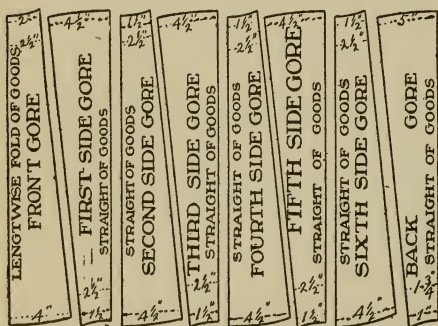 2"
2½"
LENGTWISE FOLD OF GOODS
FRONT GORE
4"
4½"
FIRST SIDE GORE
STRAIGHT OF GOODS
2½"
1½"
1½"
2½"
STRAIGHT OF GOODS
SECOND SIDE GORE
4½"
4½"
THIRD SIDE GORE
STRAIGHT OF GOODS
2½"
1½"
1½"
2½"
STRAIGHT OF GOODS
FOURTH SIDE GORE
4½"
4½"
FIFTH SIDE GORE
STRAIGHT OF GOODS
2½"
1½"
1½"
2½"
STRAIGHT OF GOODS
SIXTH SIDE GORE
4½"
5"
BACK GORE
STRAIGHT OF GOODS
1¾"
1"